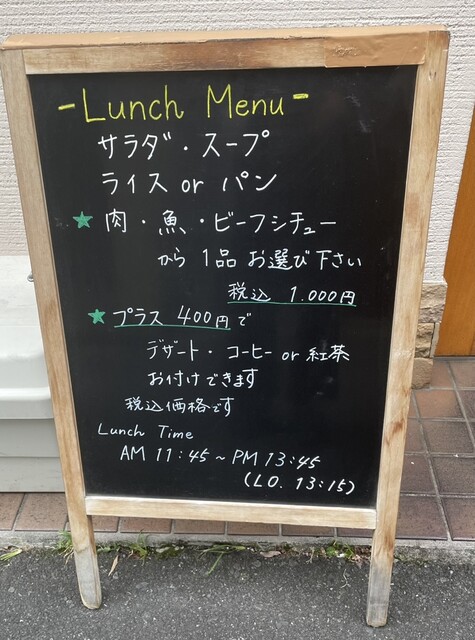 -Lunch Menu-
サラダ・スープ
ライス or パン
★ 肉・魚・ビーフシチュー
から 1品 お選び下さい
税込 1.000円
★ プラス 400円で
デザート・コーヒー or 紅茶
お付けできます
税込価格です
Lunch Time
AM 11:45～PM 13:45
(LO. 13:15)